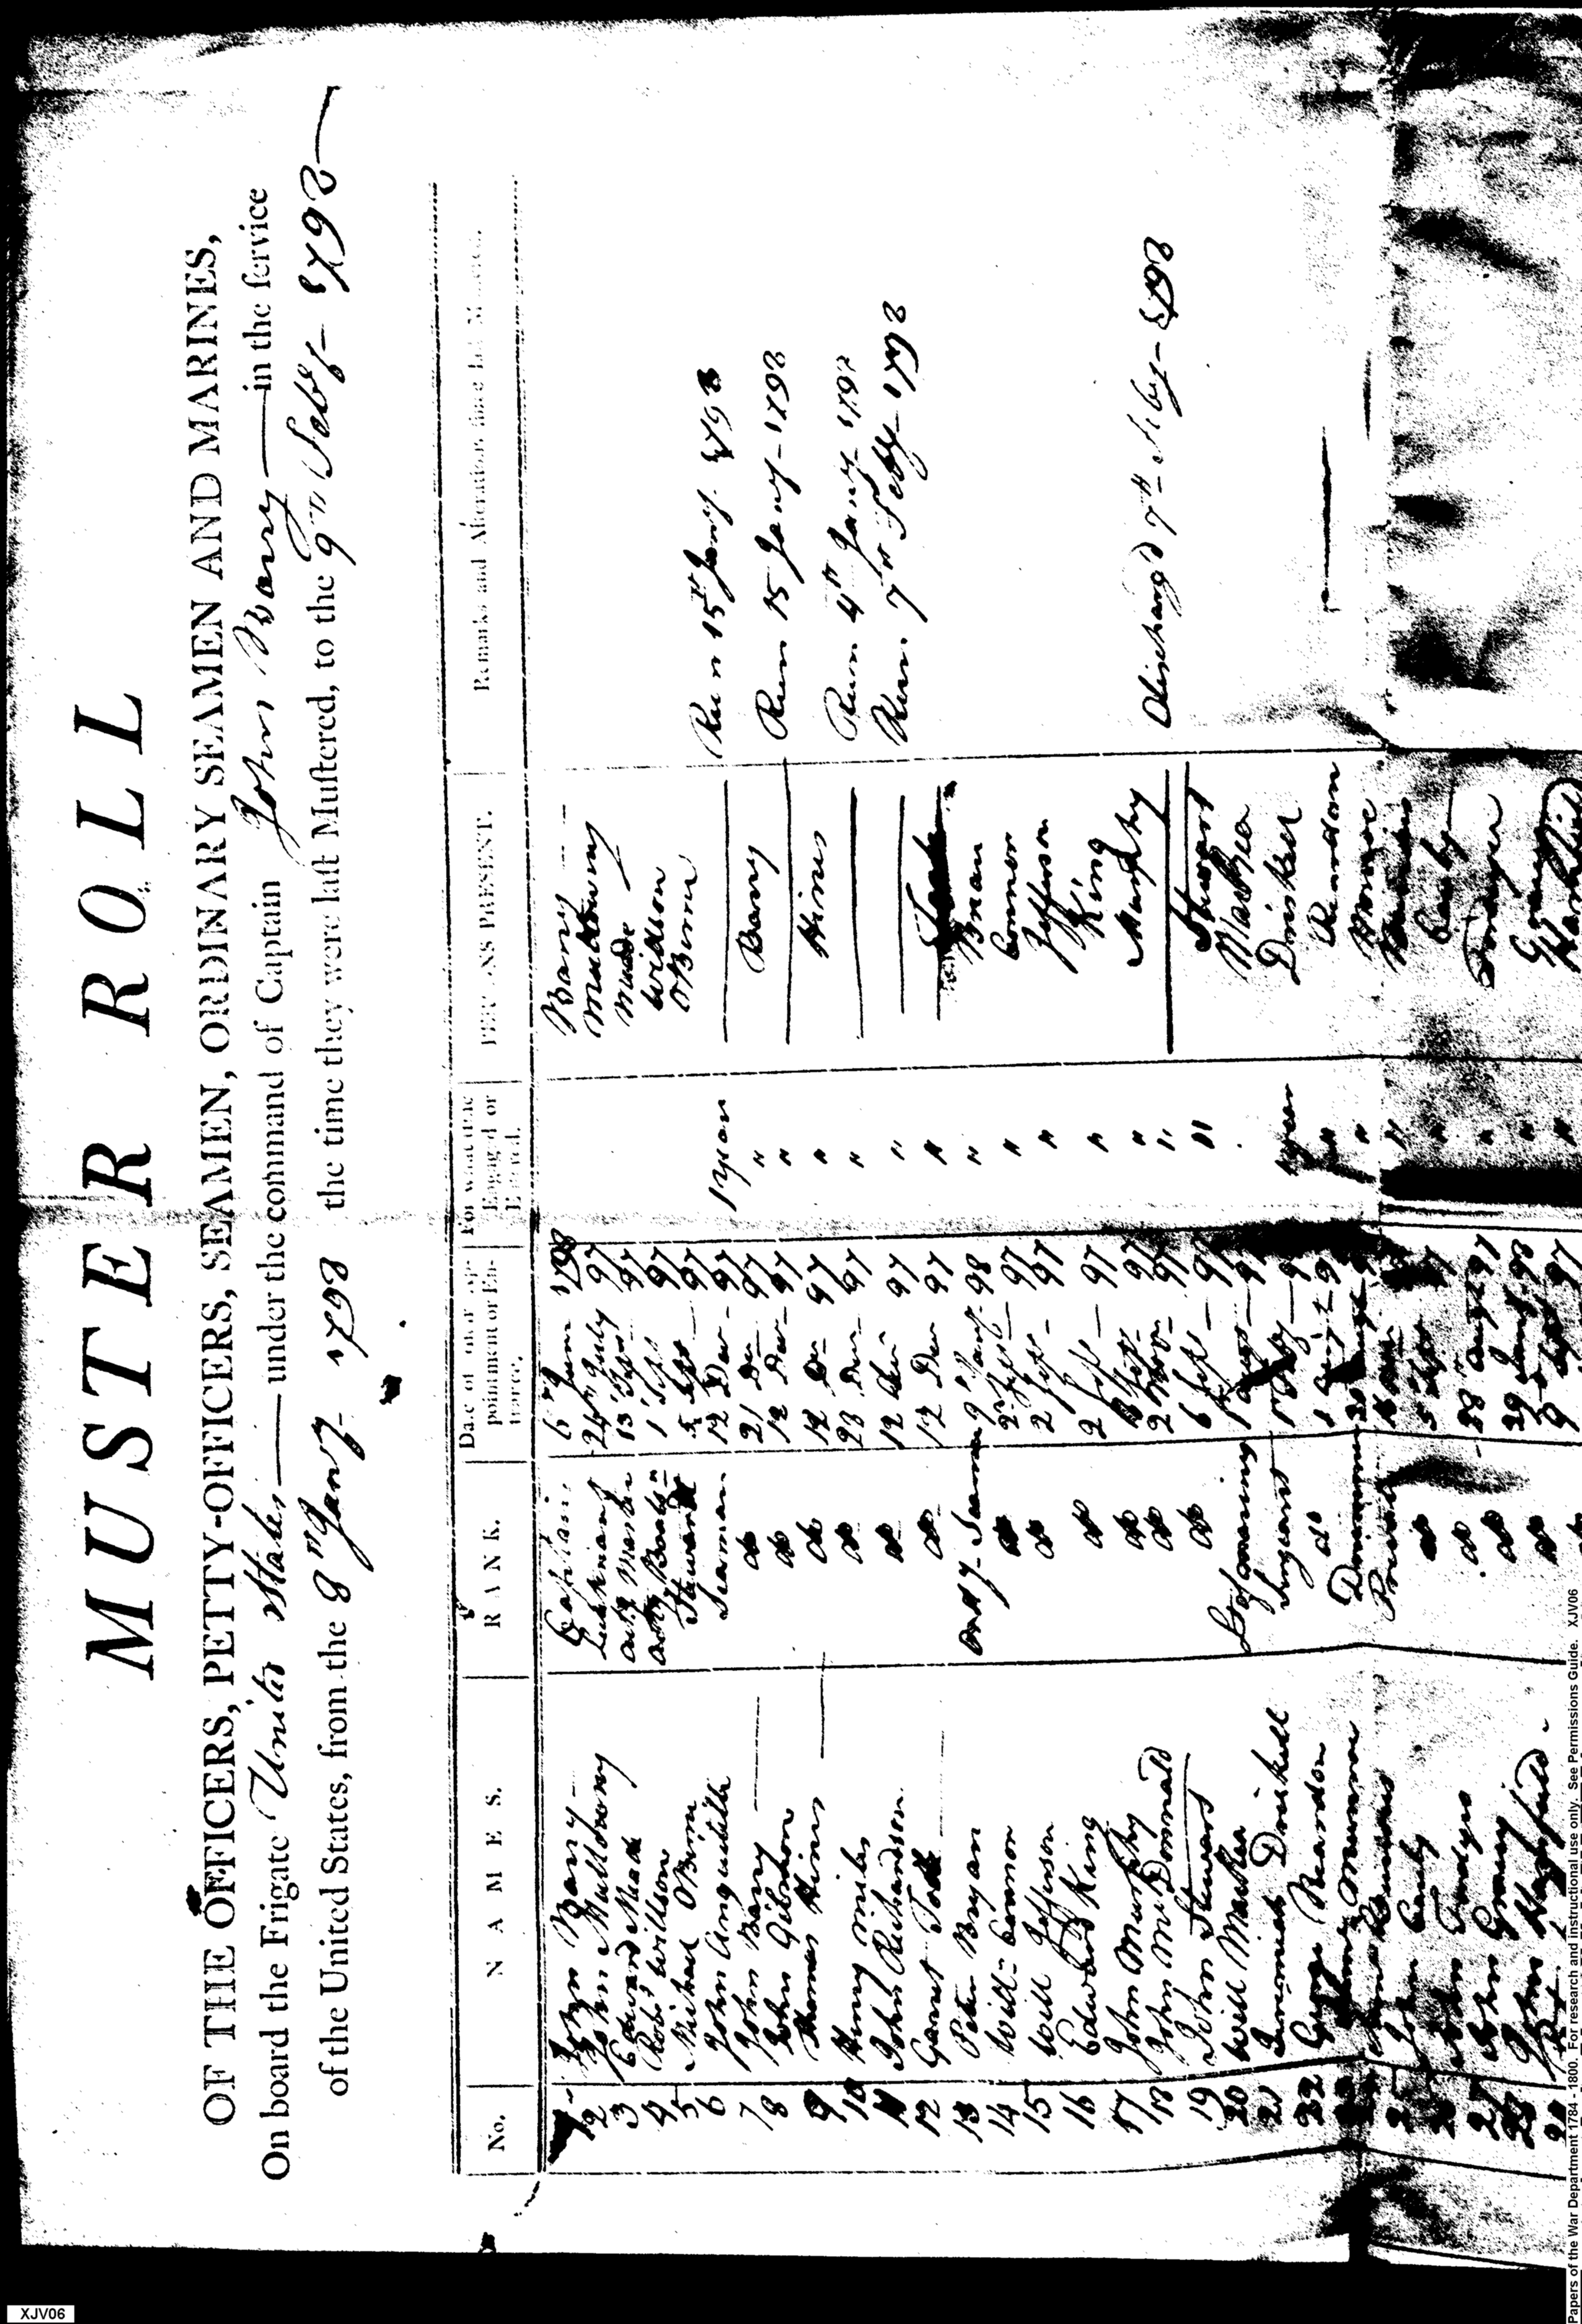 MUSTER ROLL
OF THE OFFICERS, PETTY-OFFICERS, SEAMEN, ORDINARY SEAMEN AND MARINES,
On board the Frigate United States under the command of Captain John Barry in the ſervice
of the United States, from the 8th Jany 1798 the time they were laſt Muſtered, to the 9th Feby 1798
No. NAMES. RANK. Date of their appointment or Entrance. For what time Engaged or Entered. PERSONS PRESENT. Remarks and Alterations ſince laſt Muſter.
1 John Barry Captain Barry
2 John Mullowny Lieutenant 24th July 97 Mullowny
3 Edward Meade actg Master 13 Sept 97 Meade
4 Robt Willson 1 Sept 97 Willson
5 Michael OBrien Steward 5 Sept 97 OBrien
6 John Anquitille Seaman 12 Der 97 1 year Run 15th Jany 1798
7 John Barry do 21 Der 97 " Barry
8 John Gibson do 12 Der 97 " Run 15 Jany 1798
9 Thomas Hines do 12 Der 97 " Hines
10 Henry Miles do 23 Der 97 " Run 4th Jany 1798
11 John Richardson do 12 Der 97 " Run 7th Feby 1798
12 Garret Todd do 12 Der 97 "
13 Peter Bryan Ordy Seaman 9th Jany 98 " Brian
14 Will Connor do 2 Sept 97 " Connor
15 Will Jefferson do 2 Sept 97 " Jefferson
16 Edward King do 2 Sept 97 " King
17 John Murphy do Sept 97 " Murphy
18 John McDonnald do 2 97 " Discharg'd 7th Feby 1798
19 John Stewart do 6 Sept 97 " Stewart
20 Will MacRea 1 Augt MacRea
21 Jeremiah Driskell Sergeant 1 year Driskel
22 George Reardon do 1 Augt 97 " Reardon
Munroe Drummer " Monroe
"
John Cauly do 5 Sept 97 " Cauly
John do 28 Augt 97 "
27 John Grancy do 29 Jany 98 " Grancy
28 John Hartfield do 9 Sept 97 " Hartfield
Papers of the War Department 1784 - 1800. For research and instructional use only. See Permissions Guide. XJV06
XJV06